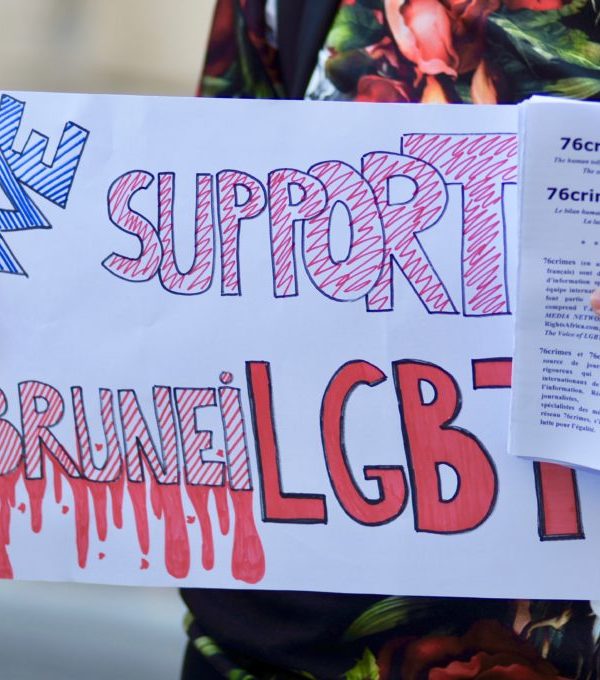 WE SUPPORT
BRUNEI LGBT
76cri
The human
The
76crim
Le bilan huma
La
76crimes (en a
français) sont d
d'information sp
équipe internat
font partie
comprend l'a
MEDIA NETWO
RightsAfrica.com,
The Voice of LGBT
76crimes et 76c
source de jour
rigoureux qui
internationaux de
l'information. Ré
journalistes,
spécialistes des mé
réseau 76crimes, s'i
lutte pour l'égalité.